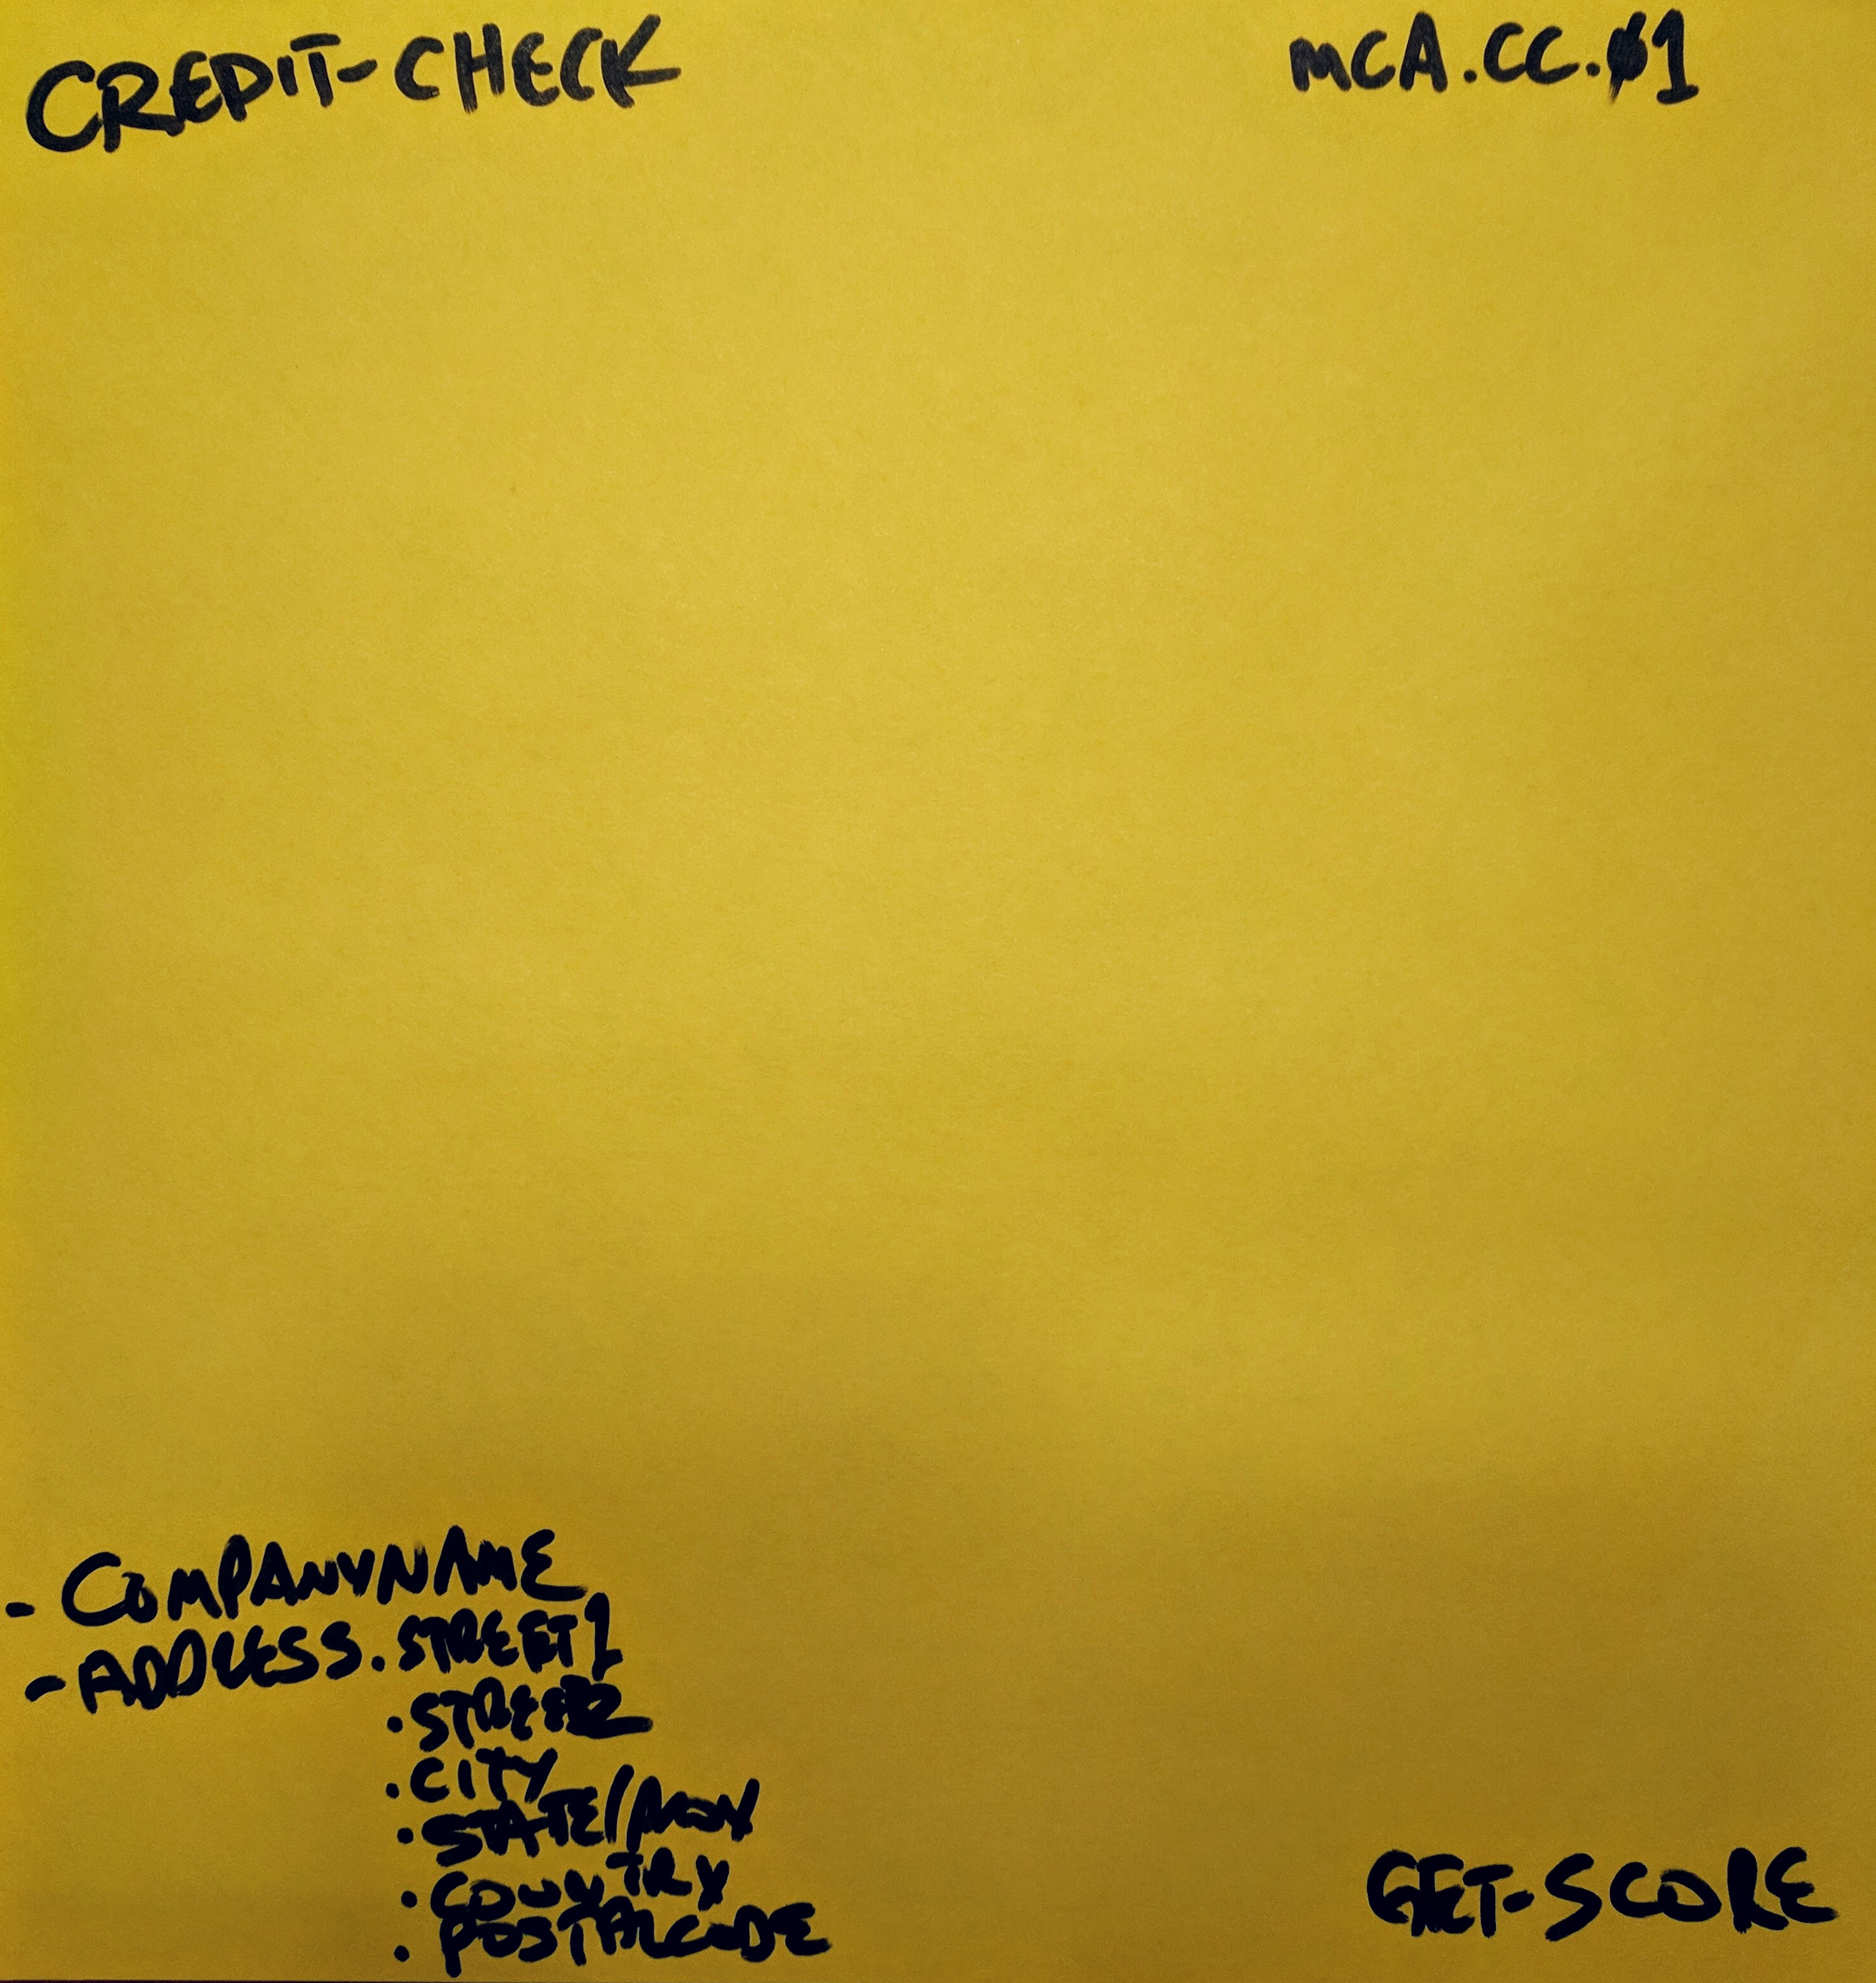 CREDIT-CHECK
MCA.CC.01
- COMPANYNAME
- ADDRESS.STREET1
.STREET2
.CITY
.STATE/PROV
.COUNTRY
.POSTALCODE
GET-SCORE